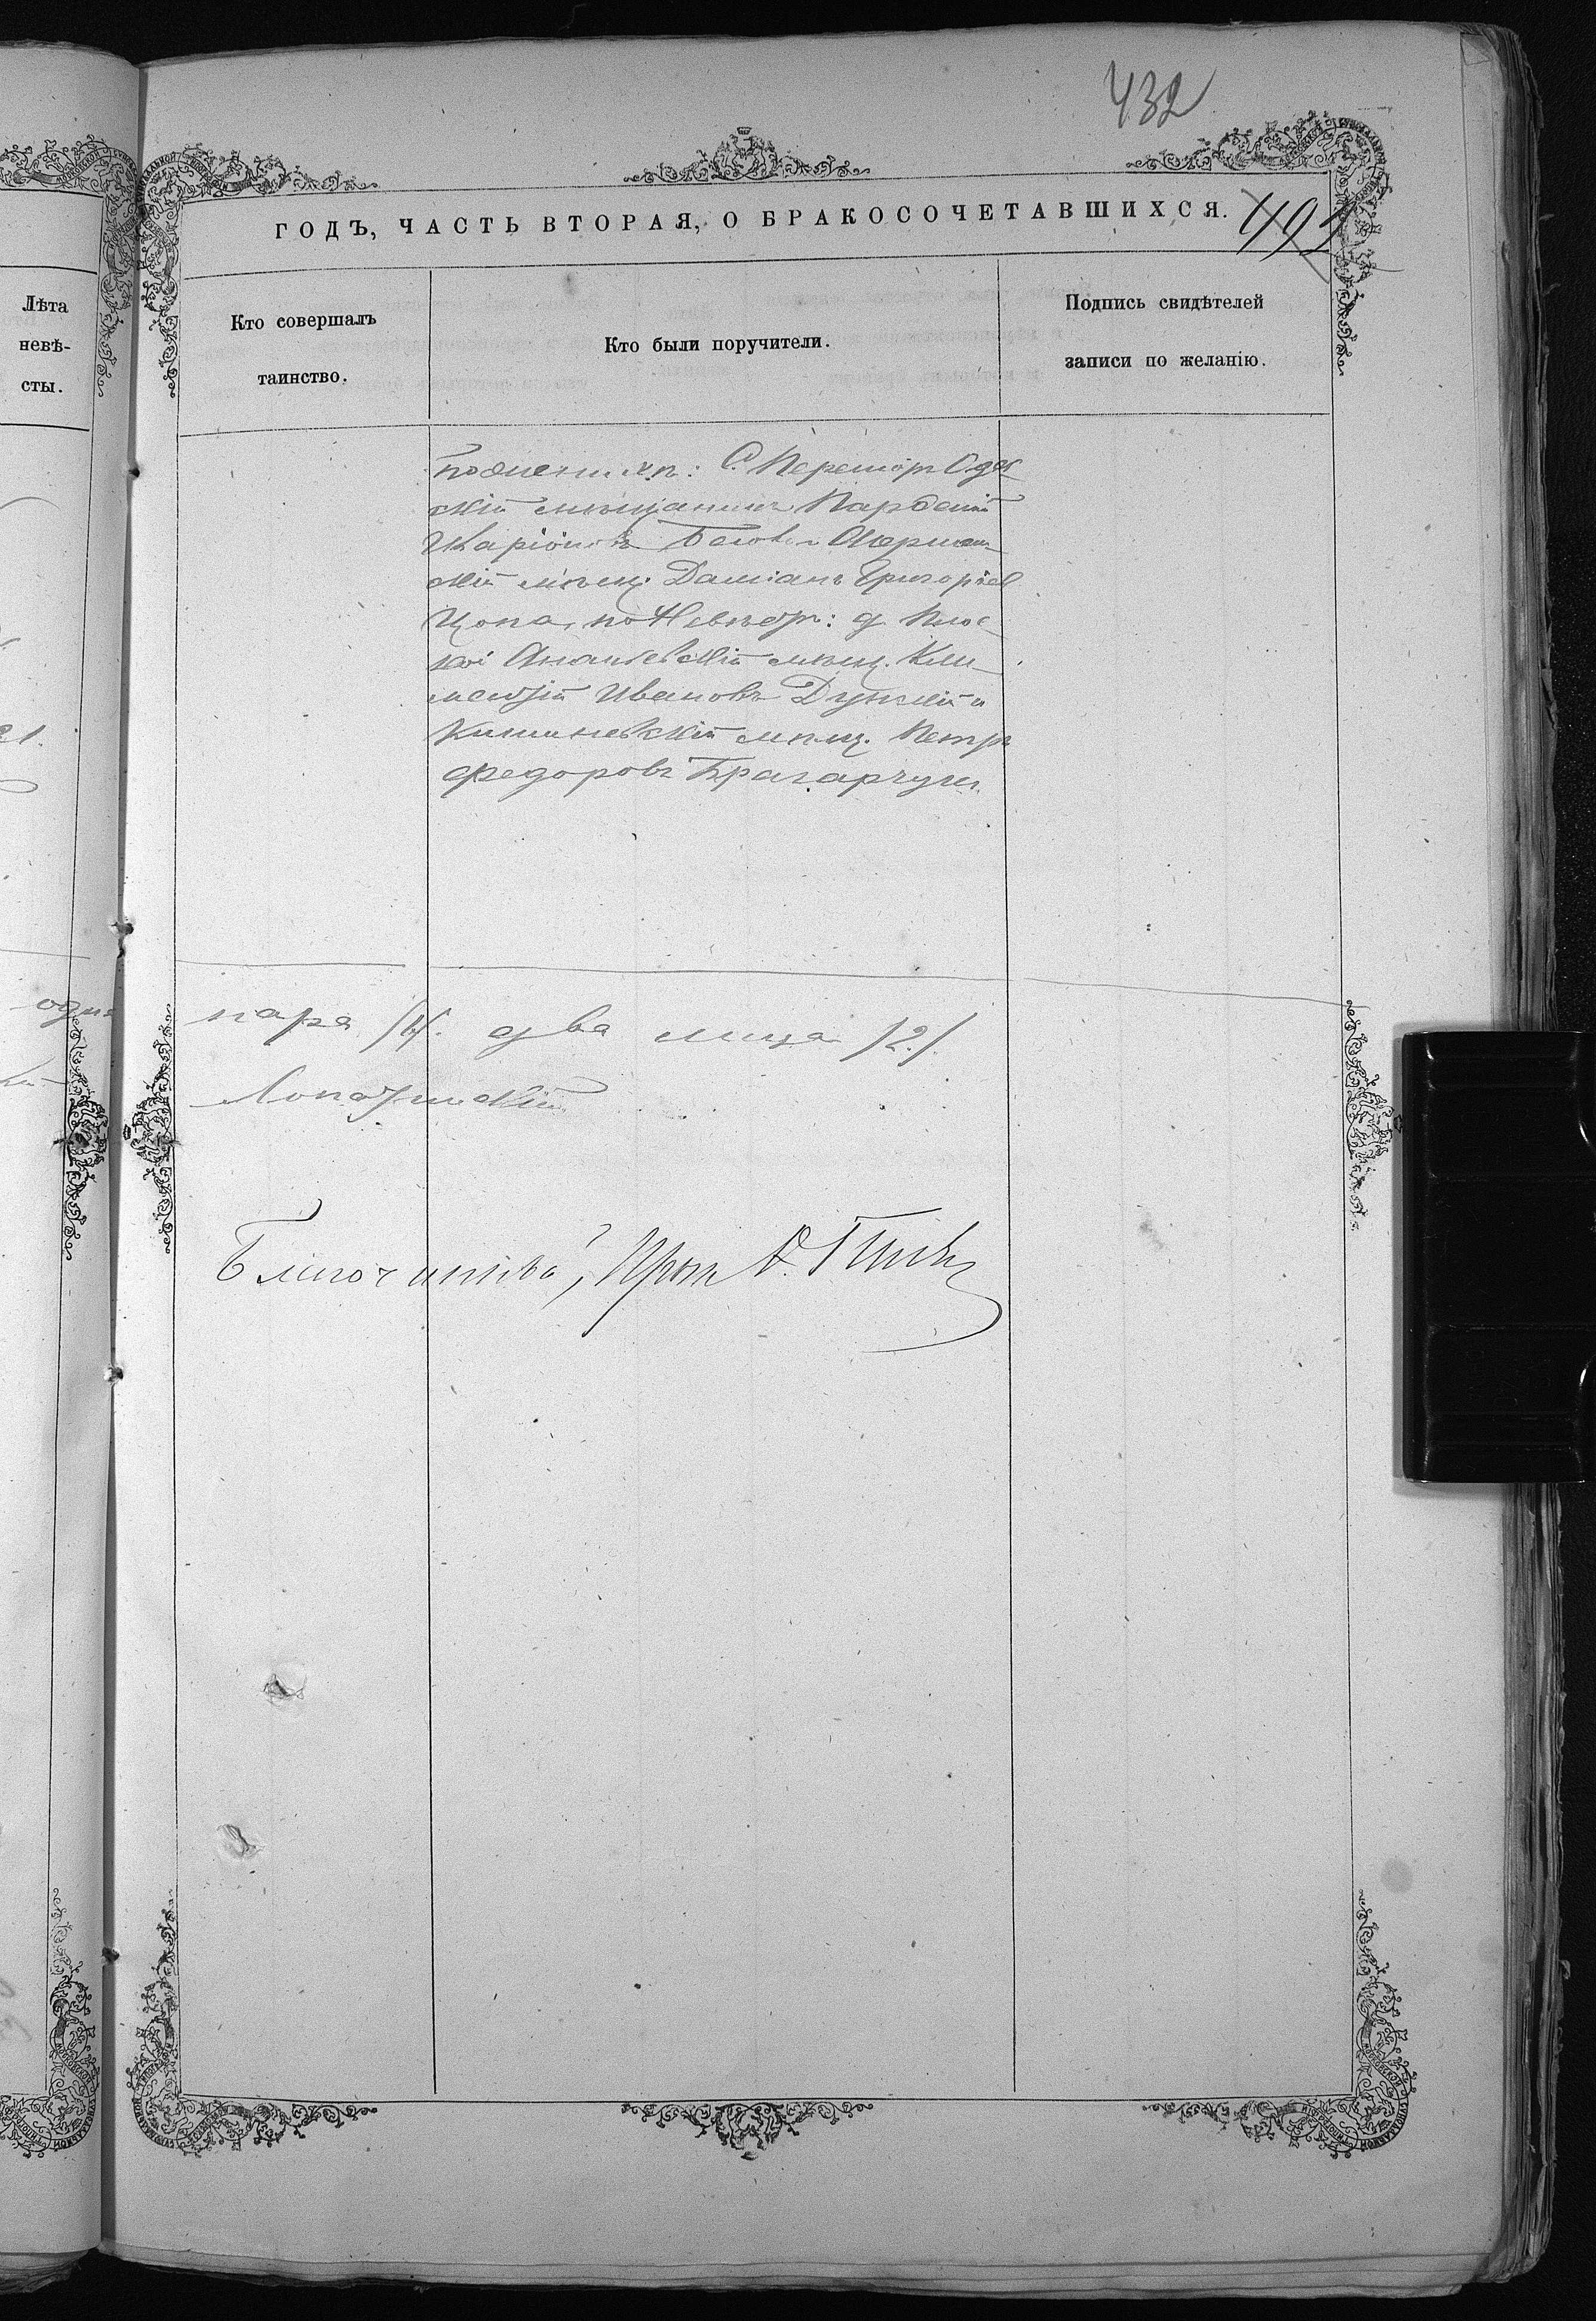 432
ГОДЪ, ЧАСТЬ ВТОРАЯ, О БРАКОСОЧЕТАВШИХСЯ.
492
Лѣта
невѣ-
сты.
Кто совершалъ
таинство.
Кто были поручители.
Подпись свидѣтелей
записи по желанію.
по женихѣ: С. Одес
скій мѣщанинъ Парѳеній
Иларіоновъ Аккерман
скій мѣщ. Даміанъ Григорьев
Цопа, по Невѣстѣ: д. Плос
кой Ананьевскій мѣщ. Кли
ментій Ивановъ и
Кишиневскій мѣщ. Петръ
Федоровъ
21.
одна
пара /1/. два лица /2/.
Лопатинскій
Благочинный, Прот.